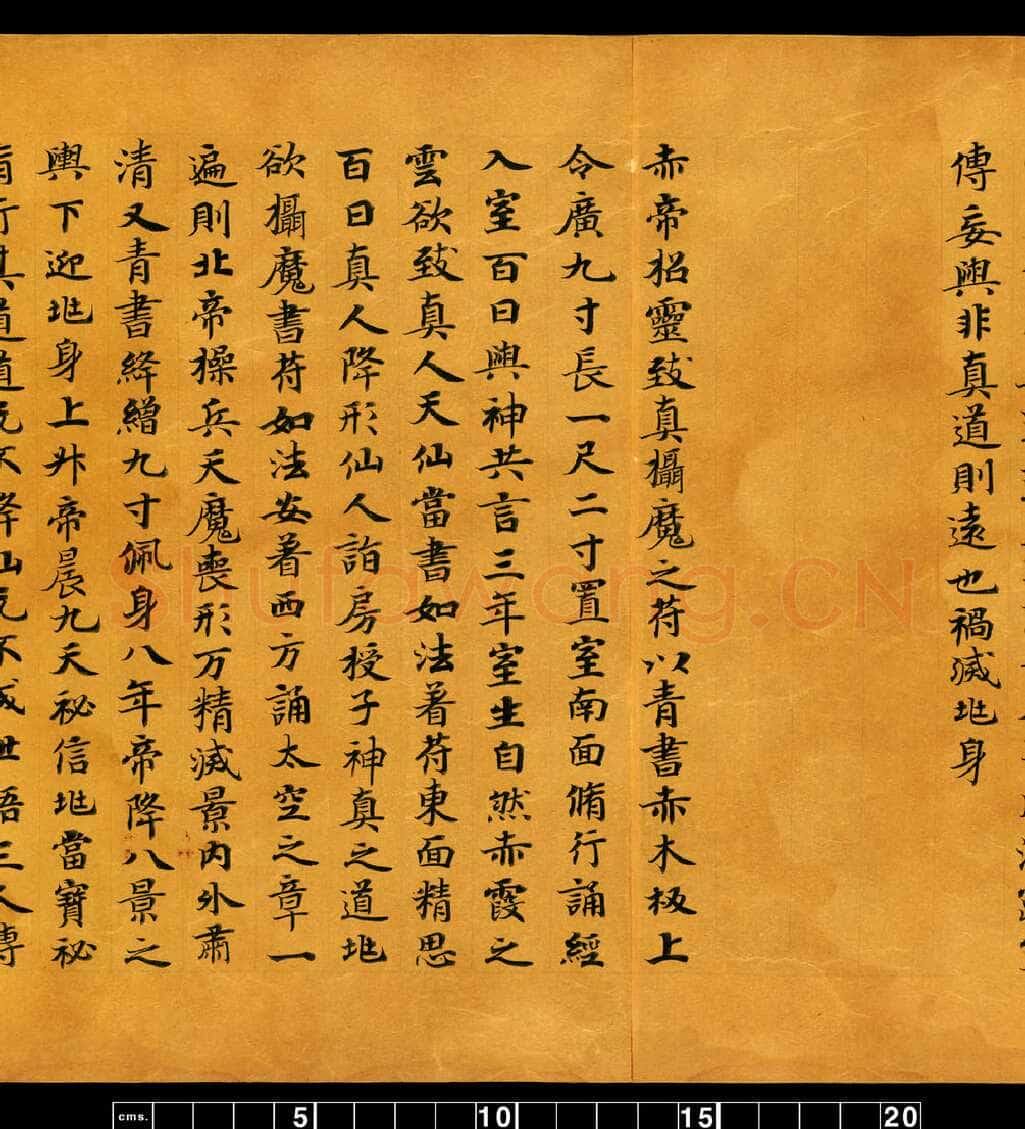 傳妄輿非真道則遠也禍滅兆身
赤帝招靈致真攝魔之符以青書赤木板上
令廣九寸長一尺二寸置室南面脩行誦經
入室百日輿神共言三年室生自然赤霞之
雲欲致真人天仙當書如法着符東面精思
百日真人降形仙人詣房授子神真之道兆
欲攝魔書符如法安着西方誦太空之章一
遍則北帝操兵天魔喪形万精滅景內外肅
清又青書絳繒九寸佩身八年帝降八景之
輿下迎兆身上升帝晨九天祕信兆當寶祕
行其道道不降仙不成世三人傳
Shufawang.CN
cms. 5 10 15 20